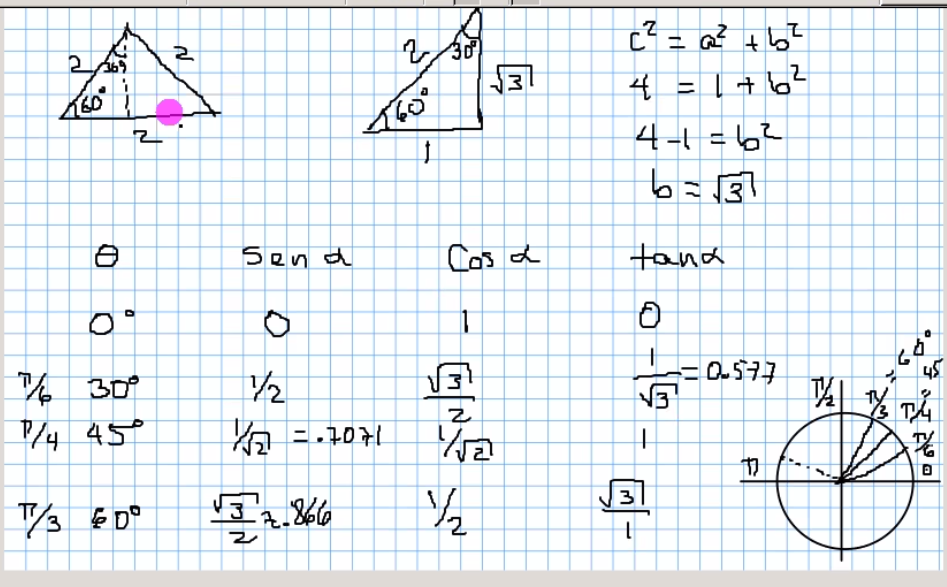 2 2
30°
60°
2
2 30°
√3
60°
1
c² = a² + b²
4 = 1 + b²
4-1 = b²
b = √3
θ Sen α Cos α tan α
0° 0 1 0
π/6 30° 1/2 √3/2 1/√3 = 0.577
π/4 45° 1/√2 = .7071 1/√2 1
π/3 60° √3/2 = .866 1/2 √3/1
60°
45°
π/2 π/3 π/4
π/6
π 0